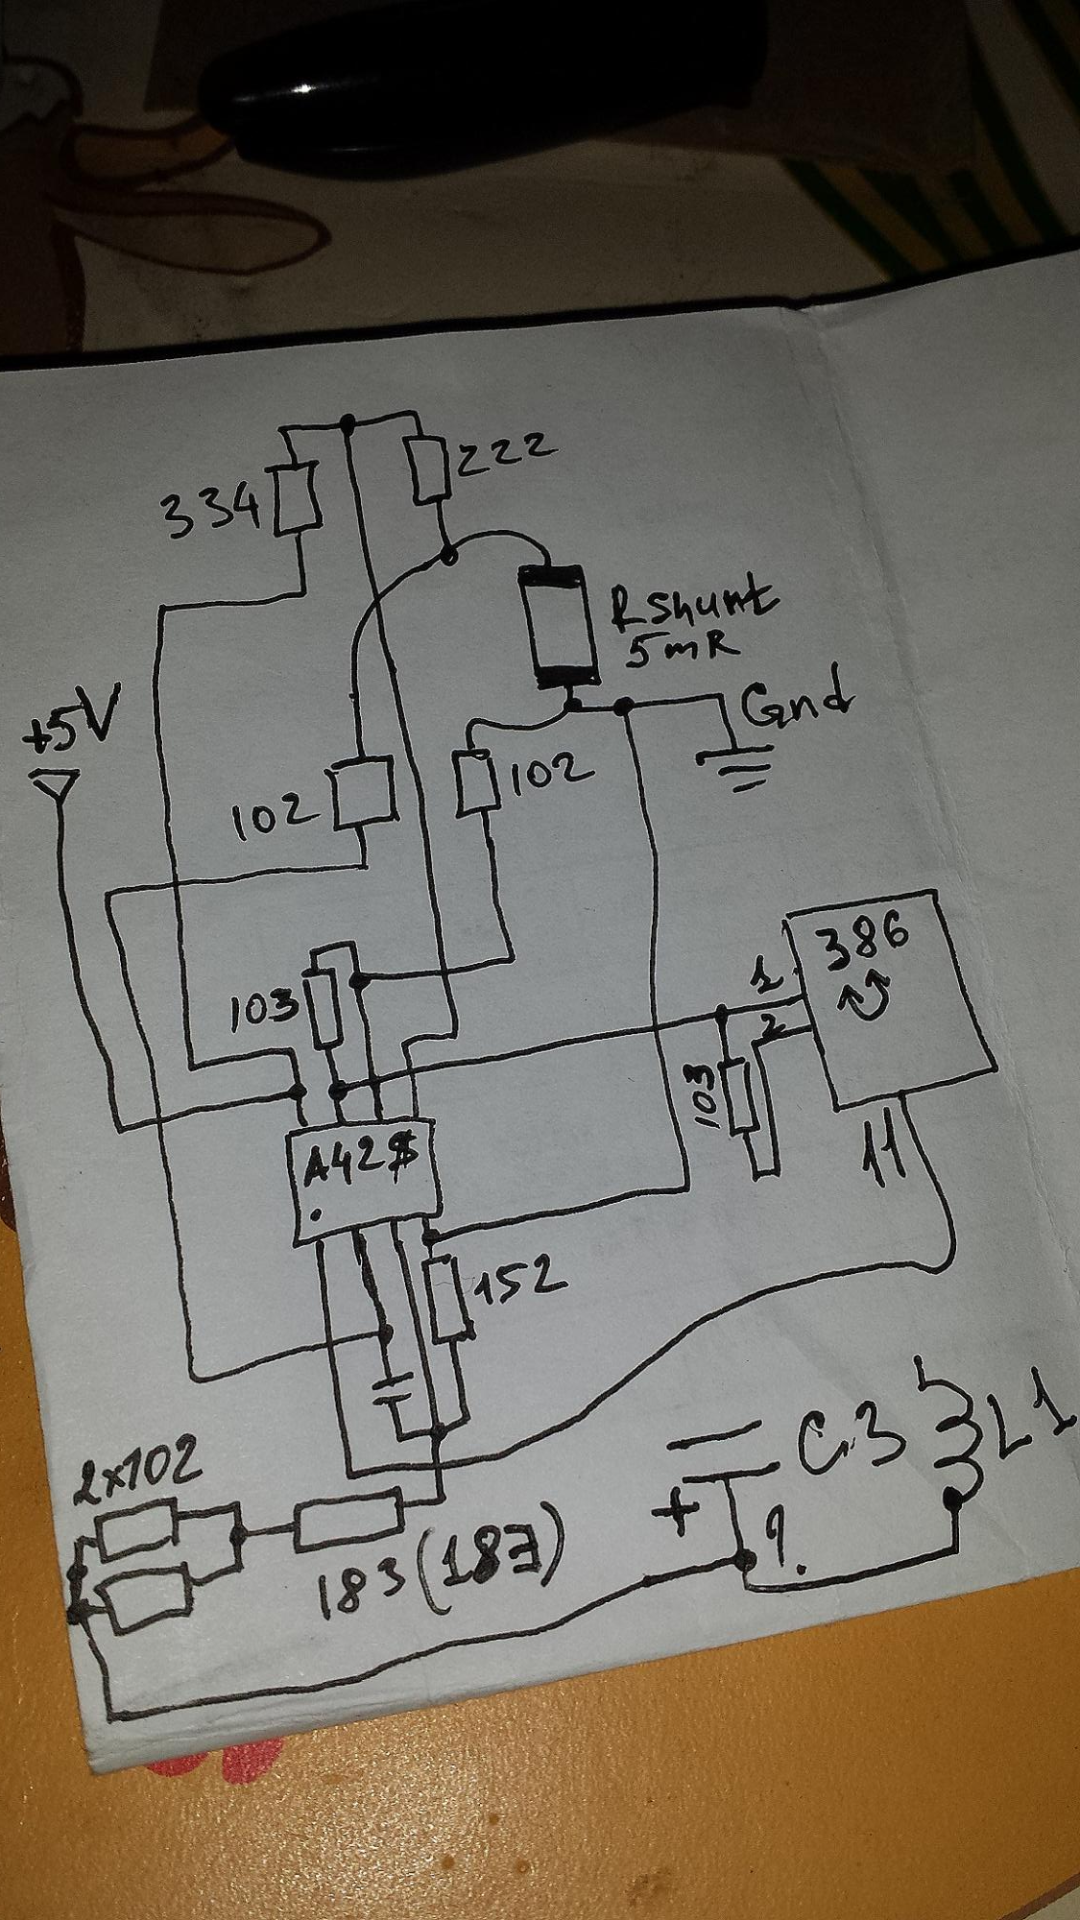 222
334
Rshunt
5mR
+5V
Gnd
102
102
386
1
103
2
103
A42$
11
152
2x102
C3
L1
+
?.
183(183)